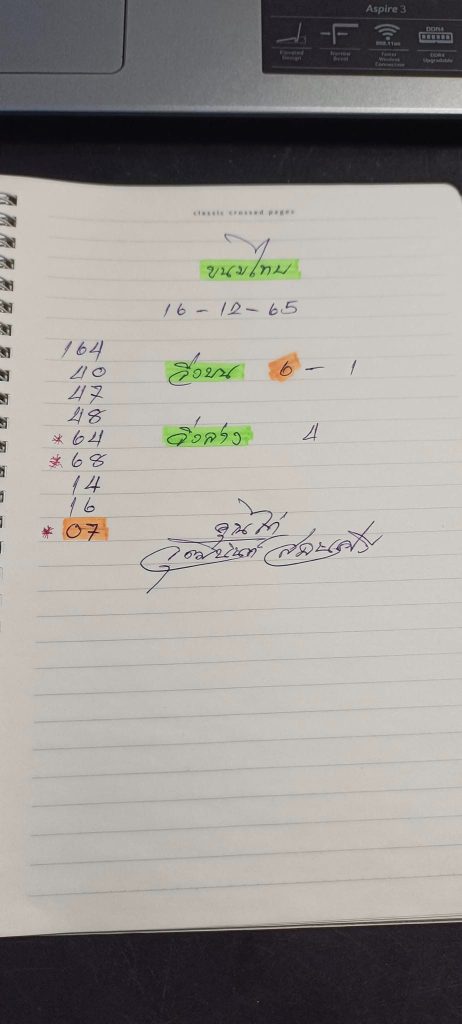 Aspire 3
Elevated Design
Narrow Bezel
802.11ac
Faster Wireless Connection
DDR4
DDR4 Upgradable
classic crossed pages
ขนมไทย
16 - 12 - 65
164
40 วิ่งบน 6 - 1
47
48
* 64 วิ่งล่าง 4
* 68
14
16
* 07